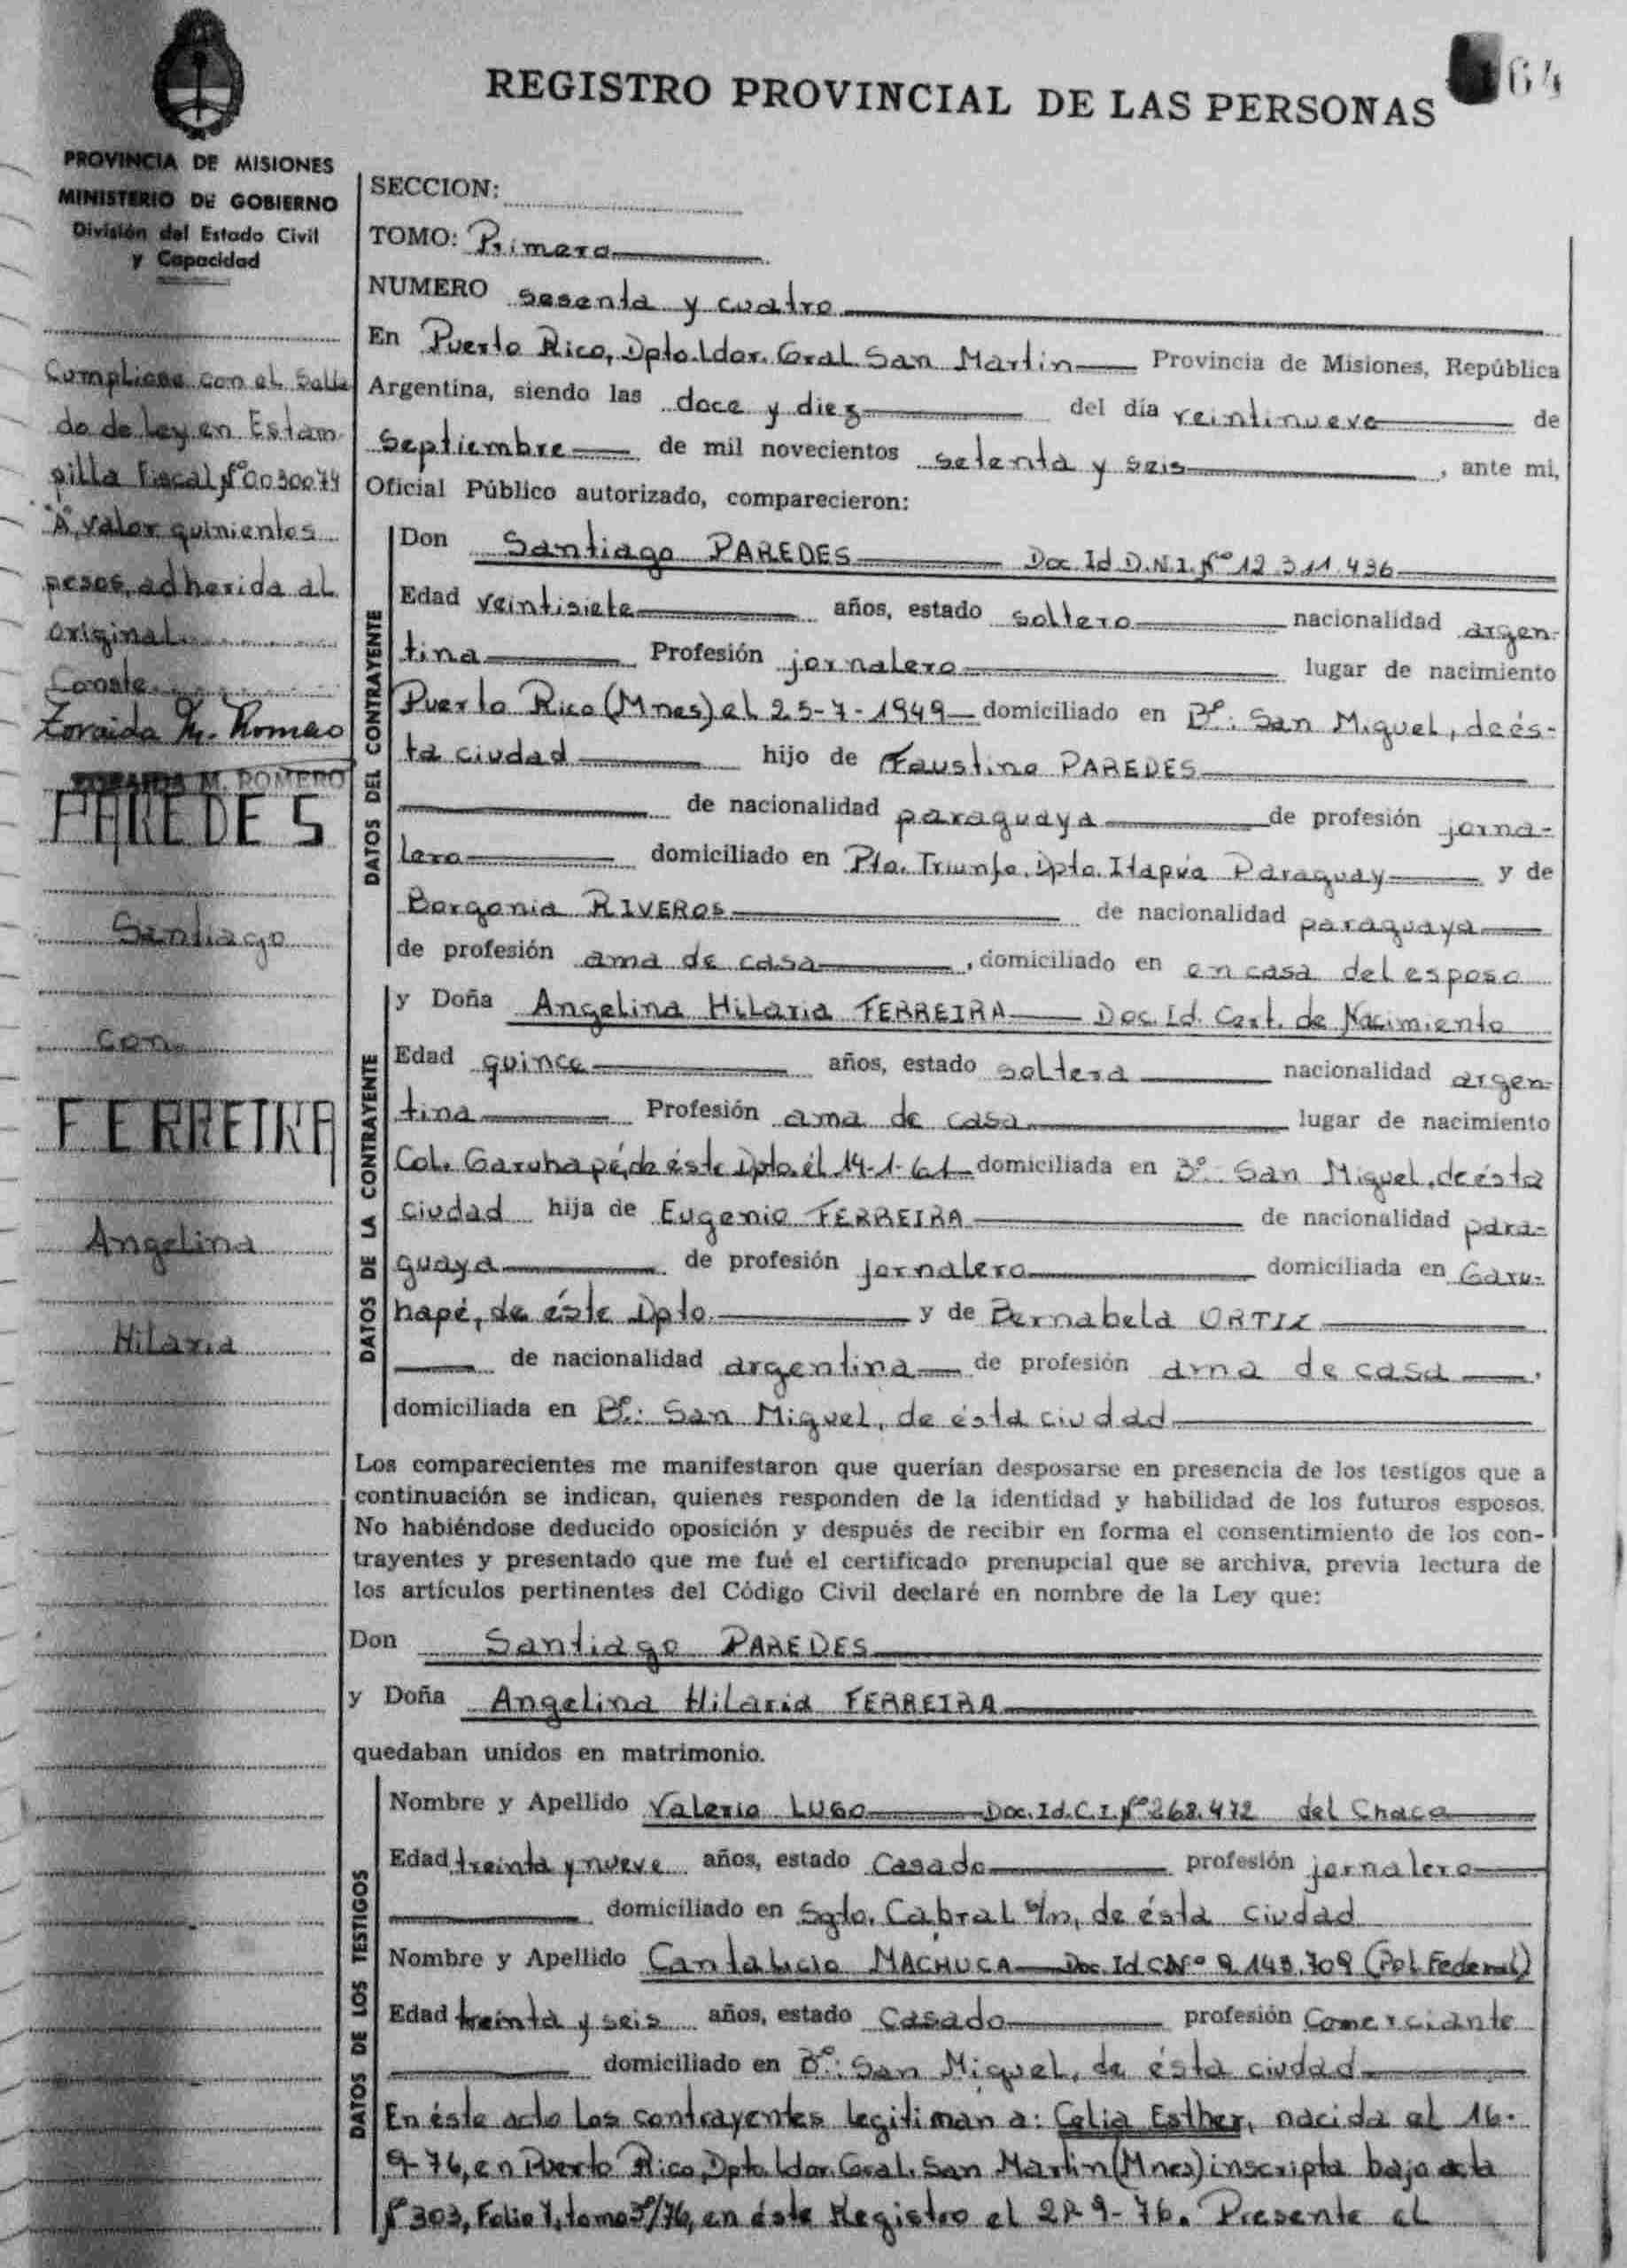 REGISTRO PROVINCIAL DE LAS PERSONAS
64
PROVINCIA DE MISIONES
MINISTERIO DE GOBIERNO
División del Estado Civil
y Capacidad
Cumpliose con el Sella
do de Ley en Estam
pilla Fiscal Nº 0030074
"A", valor quinientos
pesos, adherida al
original
Conste
Zoraida M. Romero
ZORAIDA M. ROMERO
PAREDES
Santiago
con
FERREIRA
Angelina
Hilaria
SECCION:
TOMO: Primero
NUMERO sesenta y cuatro
En Puerto Rico, Dpto. Ldor. Gral. San Martin Provincia de Misiones, República
Argentina, siendo las doce y diez del día veintinueve de
Septiembre de mil novecientos setenta y seis, ante mi,
Oficial Público autorizado, comparecieron:
DATOS DEL CONTRAYENTE
Don Santiago PAREDES Doc Id D.N.I. Nº 12.311.436
Edad veintisiete años, estado soltero nacionalidad argen-
tina Profesión jornalero lugar de nacimiento
Puerto Rico (Mnes) el 25-7-1949 domiciliado en Bº: San Miguel, de és-
ta ciudad hijo de Faustino PAREDES
de nacionalidad paraguaya de profesión jorna-
lero domiciliado en Pto. Triunfo, Dpto. Itapúa Paraguay y de
Borgonia RIVEROS de nacionalidad paraguaya
de profesión ama de casa, domiciliado en en casa del esposo
DATOS DE LA CONTRAYENTE
y Doña Angelina Hilaria FERREIRA Doc. Id. Cert. de Nacimiento
Edad quince años, estado soltera nacionalidad argen-
tina Profesión ama de casa lugar de nacimiento
Col. Garuhapé, de éste Dpto. él 14-1-61 domiciliada en Bº: San Miguel, de ésta
ciudad hija de Eugenio FERREIRA de nacionalidad para-
guaya de profesión jornalero domiciliada en Garu-
hapé, de éste Dpto. y de Bernabela ORTIZ
de nacionalidad argentina de profesión ama de casa,
domiciliada en Bº: San Miguel, de ésta ciudad
Los comparecientes me manifestaron que querían desposarse en presencia de los testigos que a
continuación se indican, quienes responden de la identidad y habilidad de los futuros esposos.
No habiéndose deducido oposición y después de recibir en forma el consentimiento de los con-
trayentes y presentado que me fué el certificado prenupcial que se archiva, previa lectura de
los artículos pertinentes del Código Civil declaré en nombre de la Ley que:
Don Santiago PAREDES
y Doña Angelina Hilaria FERREIRA
quedaban unidos en matrimonio.
DATOS DE LOS TESTIGOS
Nombre y Apellido Valerio LUGO Doc. Id. C.I. Nº 268.472 del Chaco
Edad treinta y nueve años, estado Casado profesión jornalero
domiciliado en Sgto. Cabral s/n, de ésta ciudad
Nombre y Apellido Cantalicio MACHUCA Doc. Id Nº 9.143.709 (Pol. Federal)
Edad treinta y seis años, estado Casado profesión Comerciante
domiciliado en Bº: San Miguel, de ésta ciudad
En éste acto los contrayentes legitiman a: Celia Esther, nacida el 16-
9-76, en Puerto Rico, Dpto. Ldor. Gral. San Martin (Mnes) inscripta bajo acta
Nº 303, Folio tomo 3º/76, en éste Registro el 9-76. Presente el